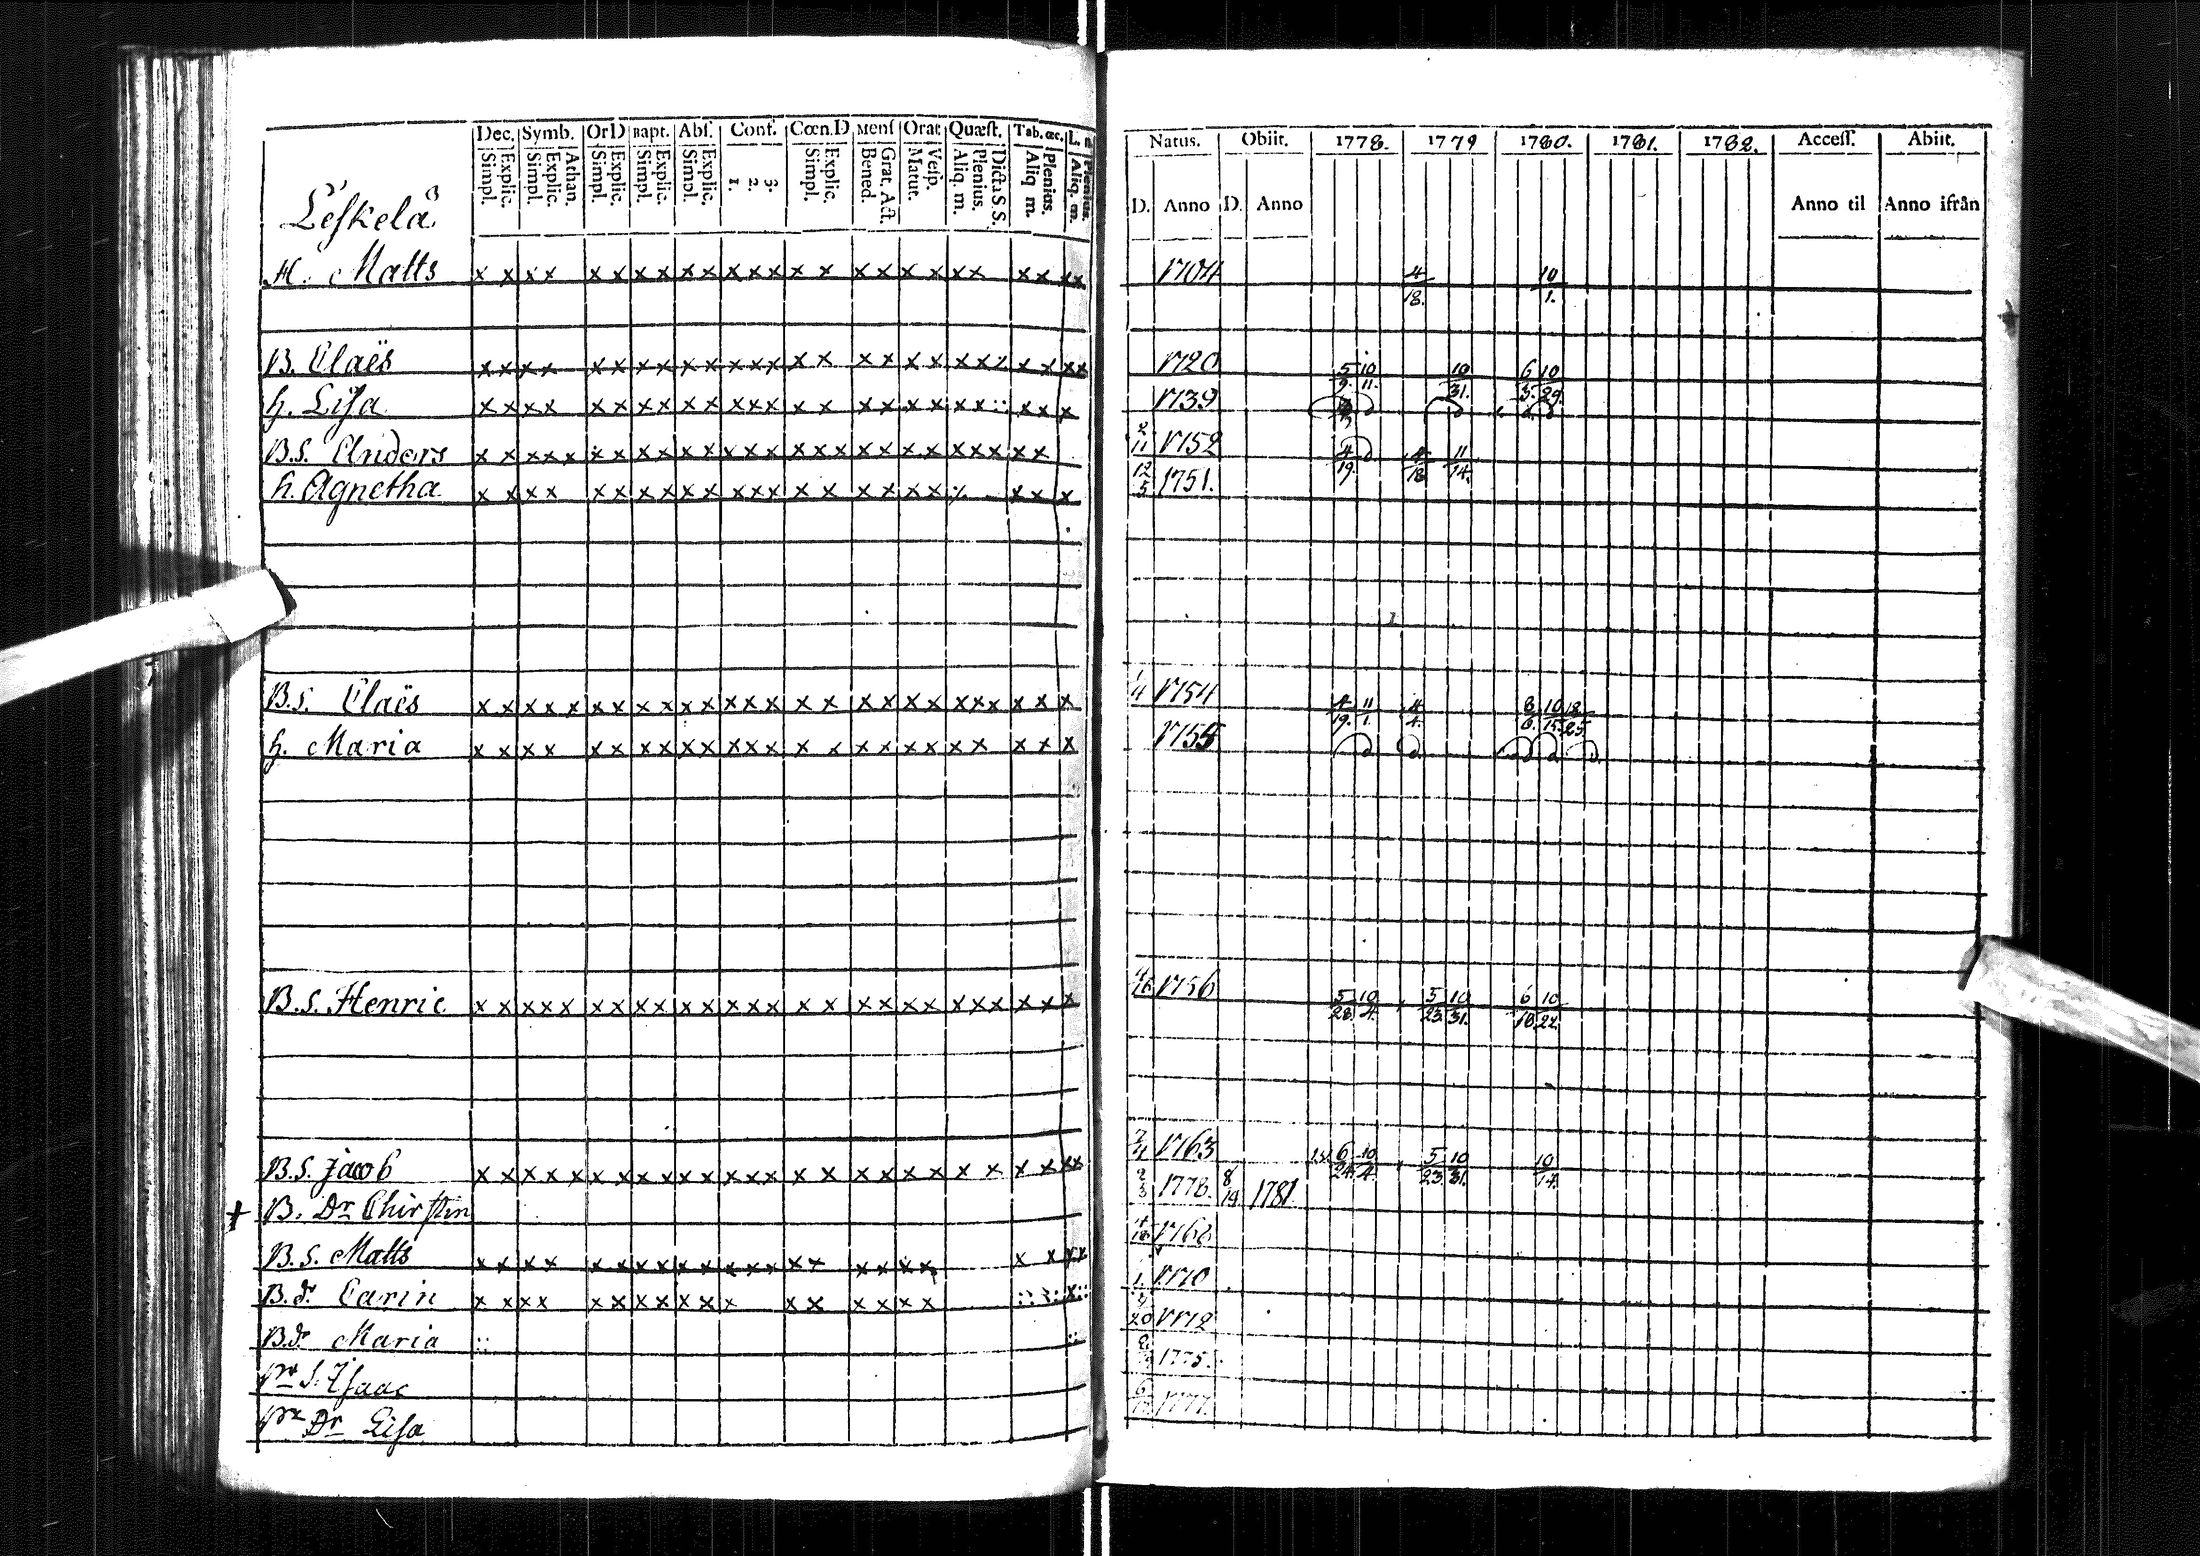 Dec. Symb. OrD Bapt. Abſ. Conf. Cœn.D Menſ Orat Quæſt. Tab. œc. L.
Simpl. Explic. Simpl. Explic. Athan. Simpl. Explic. Simpl. Explic. Simpl. Explic. 1. 2. 3. Simpl. Explic. Bened. Grat. Act. Matut. Veſp. Aliq. m. Plenius. Dicta S S. Aliq m. Plenius. Aliq. m. Plenius.
Leſkelä
H. Matts x x x x x x x x x x x x x x x x x x x x x x x x x
B. Claës x x x x x x x x x x x x x x x x x x x x x x x x x x
h. Liſa x x x x x x x x x x x x x x x x x x x x x :: x x x
B.S. Anders x x x x x x x x x x x x x x x x x x x x x x x x x x
h. Agnetha x x x x x x x x x x x x x x x x x x x x x x x
B.S. Claës x x x x x x x x x x x x x x x x x x x x x x x x x
h. Maria x x x x x x x x x x x x x x x x x x x x x x x x
B.S. Henric x x x x x x x x x x x x x x x x x x x x x x x x x
B.S. Jacob x x x x x x x x x x x x x x x x x x x x x x x x x
+ B. Dr Chirſtin
B.S. Matts x x x x x x x x x x x x x x x x x x x x x x x
B.dr Carin x x x x x x x x x x x x x x x x x
B.dr Maria ::
Pr S. Iſaac
Pr Dr Liſa
Natus. Obiit. 1778. 1779 1780. 1781. 1782. Acceſſ. Abiit.
D. Anno D. Anno Anno til Anno ifrån
1704 4/18. 10/1.
1720 5/9. 10/11. 10/31. 6/5. 10/29.
1739
2/11 1752 4/19. 4/18 11/14.
12/5 1751.
1/4 1754 4/19. 11/1. 4/4. 8/6. 10/15. 12/25.
1755
1756 5/28. 10/4. 5/23. 10/31. 6/18 10/22.
1763 6/24. 10/4. 5/23 10/31. 10/14.
2/3 1778. 8/19. 1781
1768
1770
20 1772
1775.
1777.